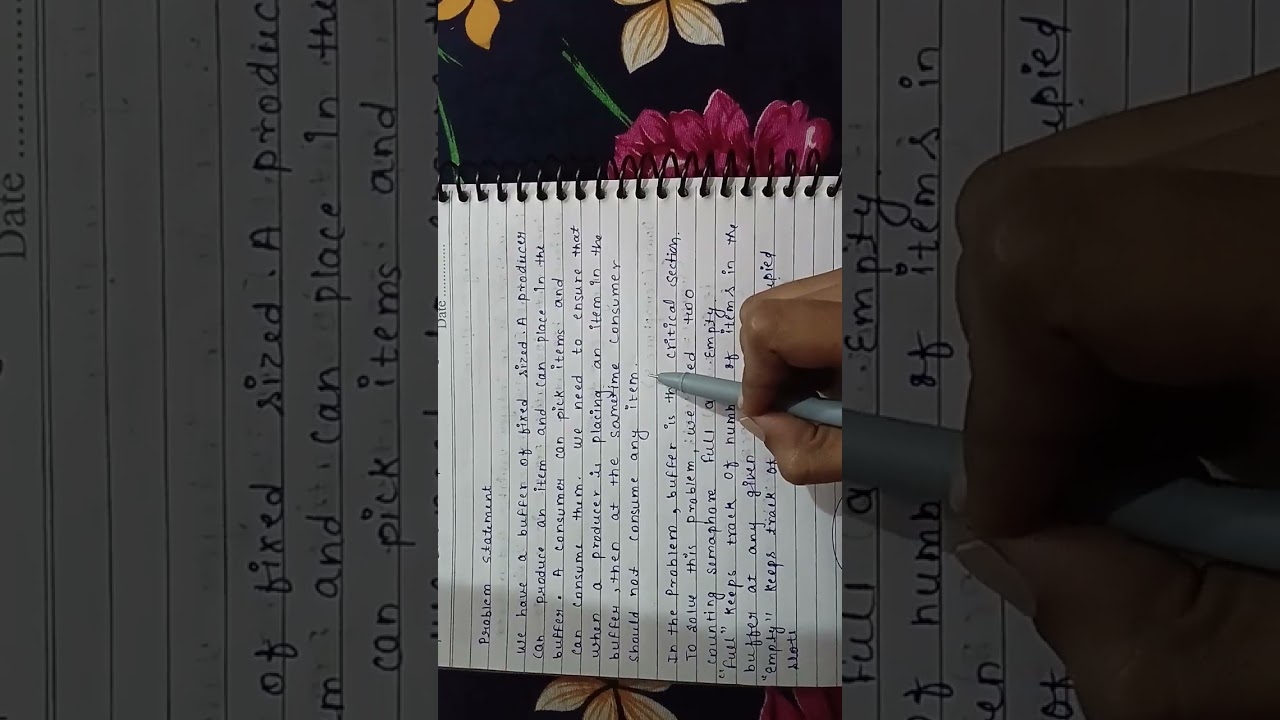 Date
Problem statement
We have a buffer of fixed sized. A producer
can produce an item and can place in the
buffer. A consumer can pick items and
can consume them. We need to ensure that
when a producer is placing an item in the
buffer, then at the sametime consumer
should not consume any item.
In the problem, buffer is the critical section.
To solve this problem, we two
counting semaphore Full Empty.
"Full" keeps track of numb of items in the
buffer at any given
"empty" keeps track of upied
slots